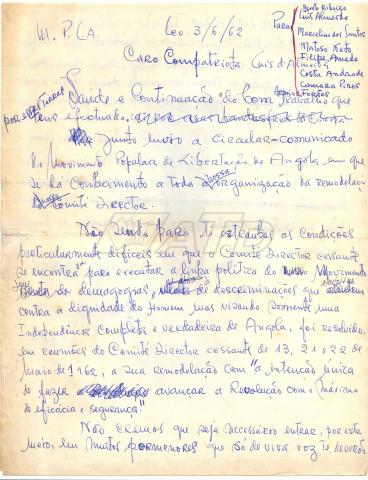 M. P. L. A.
Leo. 3/6/62
Para
Deolo
Luís Almeida
Marcelino dos Santos
Matoso Neto
Filipe Amado
Costa Andrade
Camara Pires
Fortes
Caro Compatriota Luís d'Almeida
por esses lugares
Saude e Continuação do bom trabalho que
tens efectuado,
Junto envio a circular-comunicado
do Movimento Popular de Libertação de Angola em que
se dá conhecimento a toda a nossa organização da remodelação
do Comité Director.
Não sendo para ti estranhas as condições
particularmente difíceis em que o Comité Director cessante
se encontra para executar a linha política do nosso Movimento
de demagogias, de descriminações que
contra a dignidade do Homem mas visando somente uma
Independência completa e verdadeira de Angola, foi resolvido,
em reuniões do Comité Director cessante de 13, 21 e 22 de
Maio de 1962, a sua remodelação com "a intenção única
de fazer avançar a Revolução com o máximo
de eficácia e segurança".
Não cremos que seja necessário entrar, por este
meio, em muitos pormenores que só de viva voz te deverão